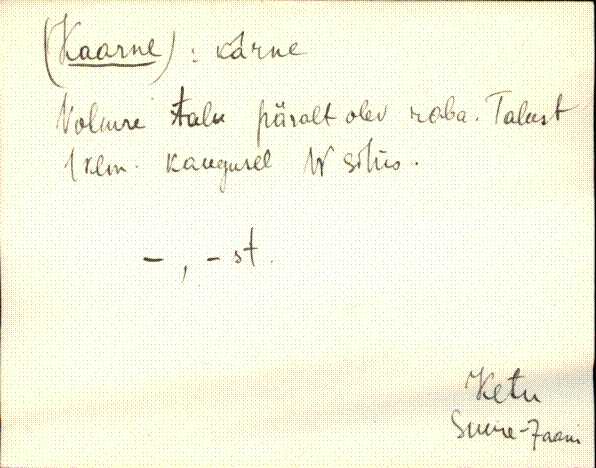 (Kaarne) : kārne
talu päralt olev raba. Talust
1 klm. kaugusel W sihis.
–, – st.
Suure-Jaani